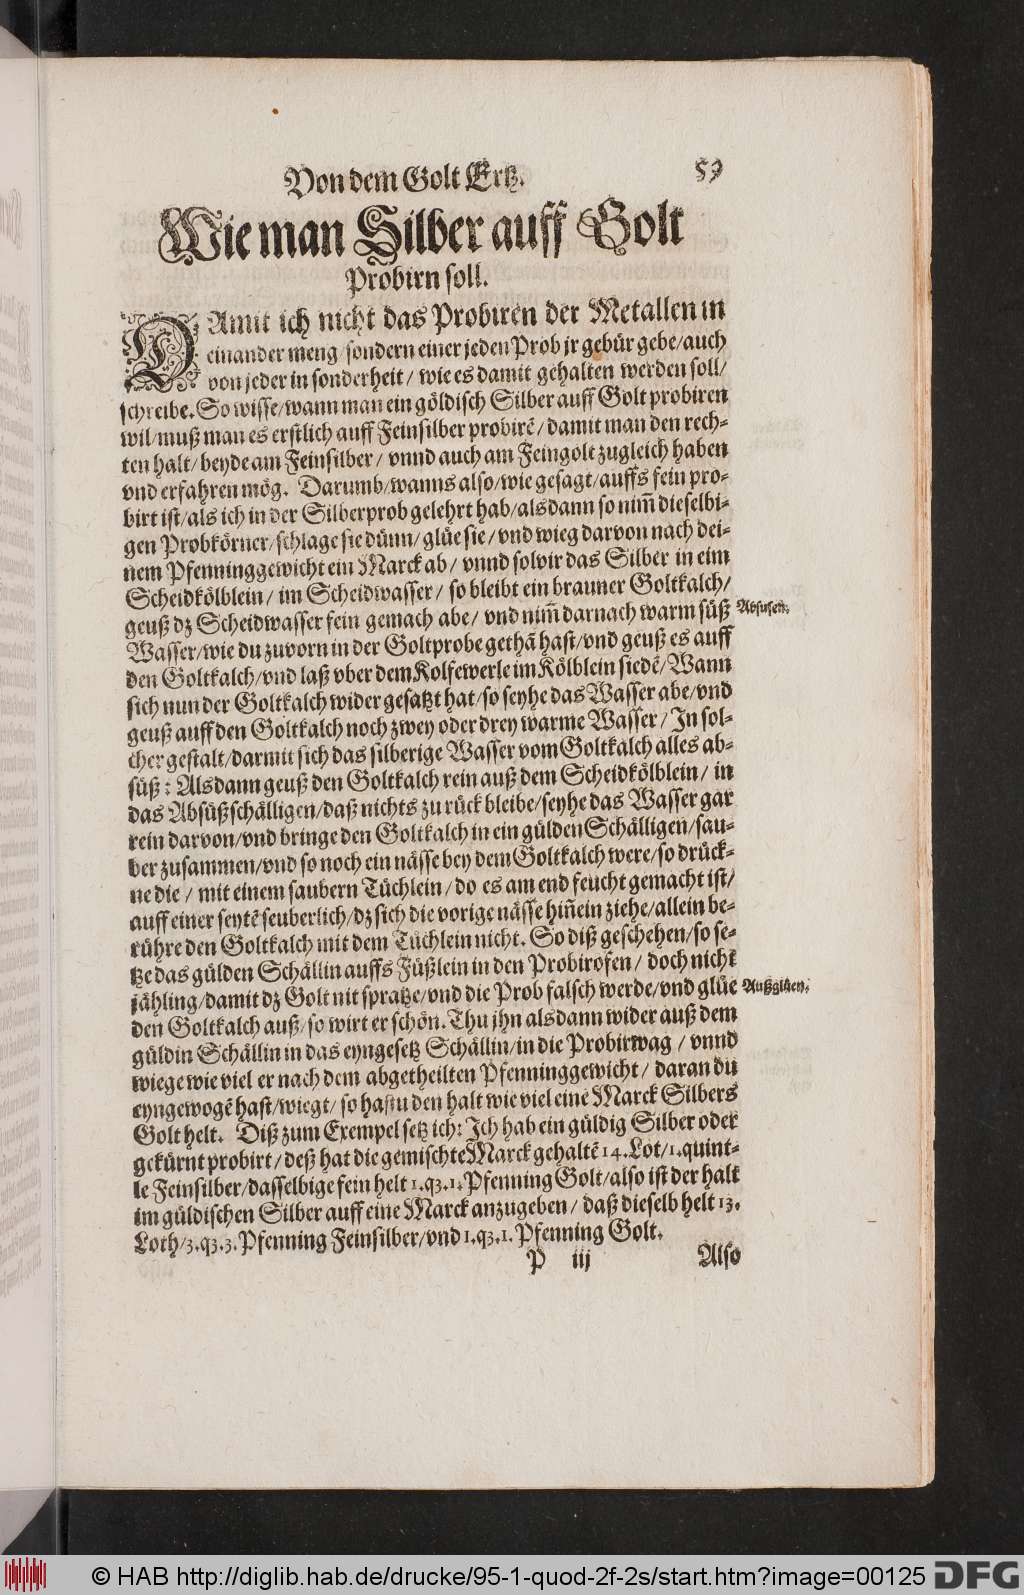 Von dem Golt Ertz. 59
Wie man Silber auff Golt
Probirn soll.
DAmit ich nicht das Probiren der Metallen in
einander meng/sondern einer jeden Prob jr gebür gebe/auch
von jeder in sonderheit/ wie es damit gehalten werden soll/
schreibe. So wisse/wann man ein göldisch Silber auff Golt probiren
wil/muß man es erstlich auff Feinsilber probirē/damit man den rech-
ten halt/beyde am Feinsilber/ vnnd auch am Feingolt zugleich haben
vnd erfahren mög. Darumb/wanns also/wie gesagt/auffs fein pro-
birt ist/als ich in der Silberprob gelehrt hab/alsdann so nim̄ dieselbi-
gen Probkörner/schlage sie dünn/glüe sie/vnd wieg darvon nach dei-
nem Pfenninggewicht ein Marck ab/ vnnd solvir das Silber in eim
Scheidkölblein/ im Scheidwasser/ so bleibt ein brauner Goltkalch/
geuß dz Scheidwasser fein gemach abe/ vnd nim̄ darnach warm süß Absusen.
Wasser/wie du zuvorn in der Goltprobe gethā hast/vnd geuß es auff
den Goltkalch/vnd laß vber dem Kolfewerle im Kölblein siedē/Wann
sich nun der Goltkalch wider gesatzt hat/so seyhe das Wasser abe/vnd
geuß auff den Goltkalch noch zwey oder drey warme Wasser/In sol-
cher gestalt/darmit sich das silberige Wasser vom Goltkalch alles ab-
süß: Alsdann geuß den Goltkalch rein auß dem Scheidkölblein/ in
das Absüßschälligen/daß nichts zu rück bleibe/seyhe das Wasser gar
rein darvon/vnd bringe den Goltkalch in ein gülden Schälligen/sau-
ber zusammen/vnd so noch ein nässe bey dem Goltkalch were/so drück-
ne die/ mit einem saubern Tüchlein/do es am end feucht gemacht ist/
auff einer seytē seuberlich/dz sich die vorige nässe hinein ziehe/allein be-
rühre den Goltkalch mit dem Tüchlein nicht. So diß geschehen/so se-
tze das gülden Schällin auffs Füßlein in den Probirofen/ doch nicht
jähling/damit dz Golt nit spratze/vnd die Prob falsch werde/vnd glüe Außglüen.
den Goltkalch auß/so wirt er schön. Thu jhn alsdann wider auß dem
güldin Schällin in das eyngesetz Schällin/in die Probirwag/ vnnd
wiege wie viel er nach dem abgetheilten Pfenninggewicht/ daran du
eyngewogē hast/wiegt/ so hastu den halt wie viel eine Marck Silbers
Golt helt. Diß zum Exempel setz ich: Ich hab ein güldig Silber oder
gekürnt probirt/deß hat die gemischte Marck gehaltē 14. Lot/1. quint-
le Feinsilber/dasselbige fein helt 1. q3. 1. Pfenning Golt/also ist der halt
im güldischen Silber auff eine Marck anzugeben/ daß dieselb helt 13.
Loth/3. q3. 3. Pfenning Feinsilber/vnd 1. q3. 1. Pfenning Golt.
P iij Also
© HAB http://diglib.hab.de/drucke/95-1-quod-2f-2s/start.htm?image=00125 DFG